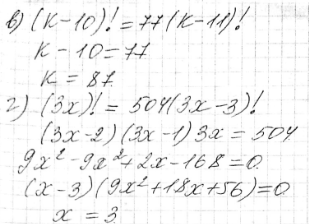 в) (к-10)! = 77(к-11)!
к - 10 = 77
к = 87.
г) (3x)! = 504(3x-3)!
(3x-2)(3x-1)3x = 504
9x² - 9x² + 2x - 168 = 0
(x-3)(9x² + 18x + 56) = 0
x = 3